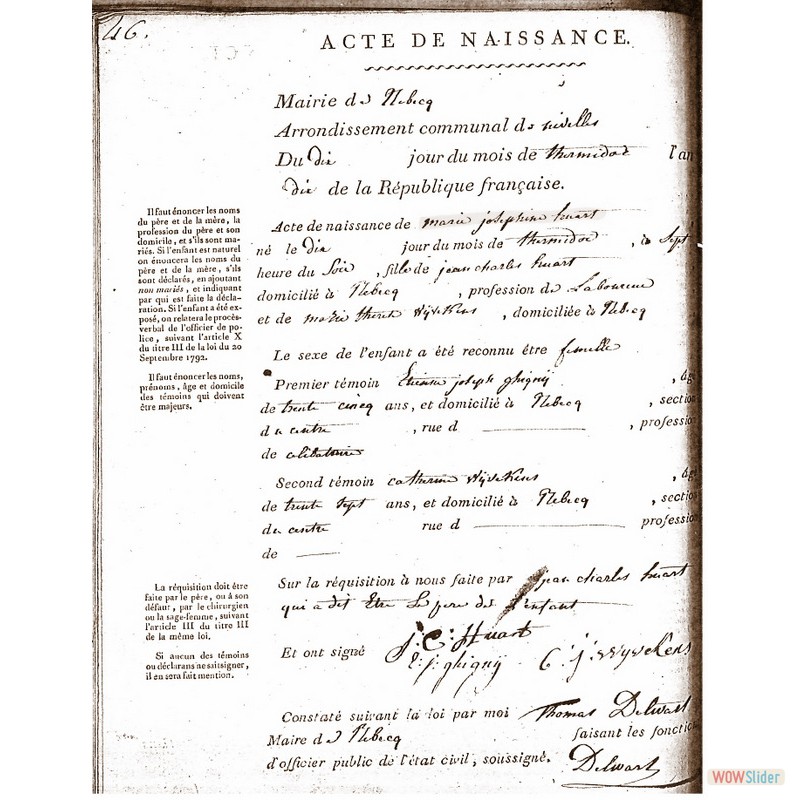 46.
ACTE DE NAISSANCE.
Mairie de Rebecq
Arrondissement communal de nivelles
Du dix jour du mois de thermidor l'an
dix de la République française.
Il faut énoncer les noms
du père et de la mère, la
profession du père et son
domicile, et s'ils sont ma-
riés. Si l'enfant est naturel
on énoncera les noms du
père et de la mère, s'ils
sont déclarés, en ajoutant
non mariés, et indiquant
par qui est faite la décla-
ration. Si l'enfant a été ex-
posé, on relatera le procès-
verbal de l'officier de po-
lice, suivant l'article X
du titre III de la loi du 20
Septembre 1792.
Il faut énoncer les noms,
prénoms, âge et domicile
des témoins qui doivent
être majeurs.
Acte de naissance de marie josephine huart
né le dix jour du mois de thermidor, à sept
heure du soir, fille de jean charles huart
domicilié à Rebecq, profession de Laboureur
et de marie therese Wÿvekens, domiciliée à Rebecq
Le sexe de l'enfant a été reconnu être femelle
Premier témoin Etienne joseph ghignij, âgé
de trente cincq ans, et domicilié à Rebecq, section
du centre, rue d, profession
de celibataire
Second témoin catherine Wÿvekens, âgé
de trente sept ans, et domicilié à Rebecq, section
du centre rue d profession
de
La réquisition doit être
faite par le père, ou à son
défaut, par le chirurgien
ou la sage-femme, suivant
l'article III du titre III
de la même loi.
Si aucun des témoins
ou déclarans ne sait signer,
il en sera fait mention.
Sur la réquisition à nous faite par jean charles huart
qui a dit Etre Le pere de l'enfant
Et ont signé J: C: Huart
E: j: ghignij C. j. Wyvekens
Constaté suivant la loi par moi Thomas Delwart
Maire de Rebecq faisant les fonctions
d'officier public de l'état civil, soussigné. Delwart
WOWSlider